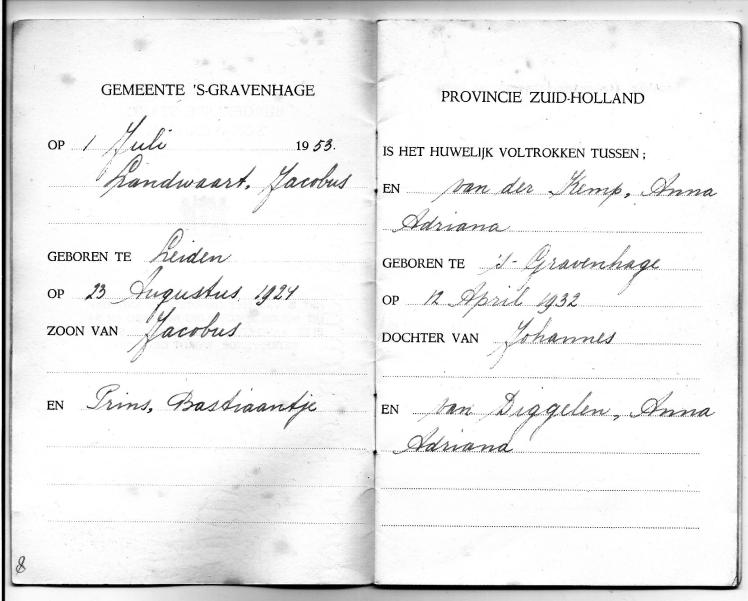 GEMEENTE 'S-GRAVENHAGE
OP 1 Juli 1953.
Landwaart, Jacobus
GEBOREN TE Leiden
OP 23 Augustus 1924
ZOON VAN Jacobus
EN Prins, Bastiaantje
8
PROVINCIE ZUID-HOLLAND
IS HET HUWELIJK VOLTROKKEN TUSSEN;
EN van der Kemp, Anna
Adriana
GEBOREN TE 's-Gravenhage
OP 12 April 1932
DOCHTER VAN Johannes
EN van Diggelen, Anna
Adriana